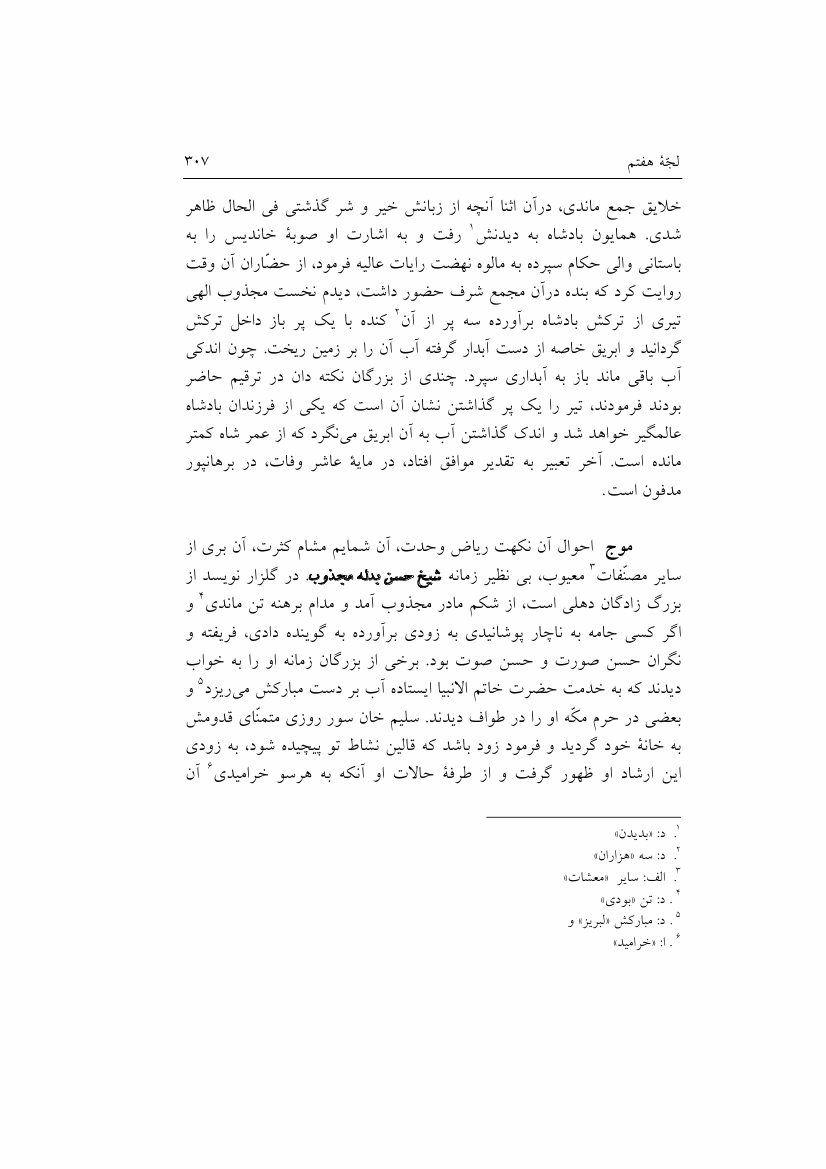 لجّهٔ هفتم ۳۰۷
خلایق جمع ماندی، درآن اثنا آنچه از زبانش خیر و شر گذشتی فی الحال ظاهر
شدی. همایون بادشاه به دیدنش۱ رفت و به اشارت او صوبهٔ خاندیس را به
باستانی والی حکام سپرده به مالوه نهضت رایات عالیه فرمود، از حضّاران آن وقت
روایت کرد که بنده درآن مجمع شرف حضور داشت، دیدم نخست مجذوب الهی
تیری از ترکش بادشاه برآورده سه پر از آن۲ کنده با یک پر باز داخل ترکش
گردانید و ابریق خاصه از دست آبدار گرفته آب آن را بر زمین ریخت. چون اندکی
آب باقی ماند باز به آبداری سپرد. چندی از بزرگان نکته دان در ترقیم حاضر
بودند فرمودند، تیر را یک پر گذاشتن نشان آن است که یکی از فرزندان بادشاه
عالمگیر خواهد شد و اندک گذاشتن آب به آن ابریق می‌نگرد که از عمر شاه کمتر
مانده است. آخر تعبیر به تقدیر موافق افتاد، در مایهٔ عاشر وفات، در برهانپور
مدفون است.
موج احوال آن نکهت ریاض وحدت، آن شمایم مشام کثرت، آن بری از
سایر مصنّفات۳ معیوب، بی نظیر زمانه شیخ حسن بدله مجذوب. در گلزار نویسد از
بزرگ زادگان دهلی است، از شکم مادر مجذوب آمد و مدام برهنه تن ماندی۴ و
اگر کسی جامه به ناچار پوشانیدی به زودی برآورده به گوینده دادی، فریفته و
نگران حسن صورت و حسن صوت بود. برخی از بزرگان زمانه او را به خواب
دیدند که به خدمت حضرت خاتم الانبیا ایستاده آب بر دست مبارکش می‌ریزد۵ و
بعضی در حرم مکّه او را در طواف دیدند. سلیم خان سور روزی متمنّای قدومش
به خانهٔ خود گردید و فرمود زود باشد که قالین نشاط تو پیچیده شود، به زودی
این ارشاد او ظهور گرفت و از طرفهٔ حالات او آنکه به هرسو خرامیدی۶ آن
۱. د: «بدیدن»
۲. د: سه «هزاران»
۳. الف: سایر «معشات»
۴. د: تن «بودی»
۵. د: مبارکش «لبریز» و
۶. ا: «خرامید»